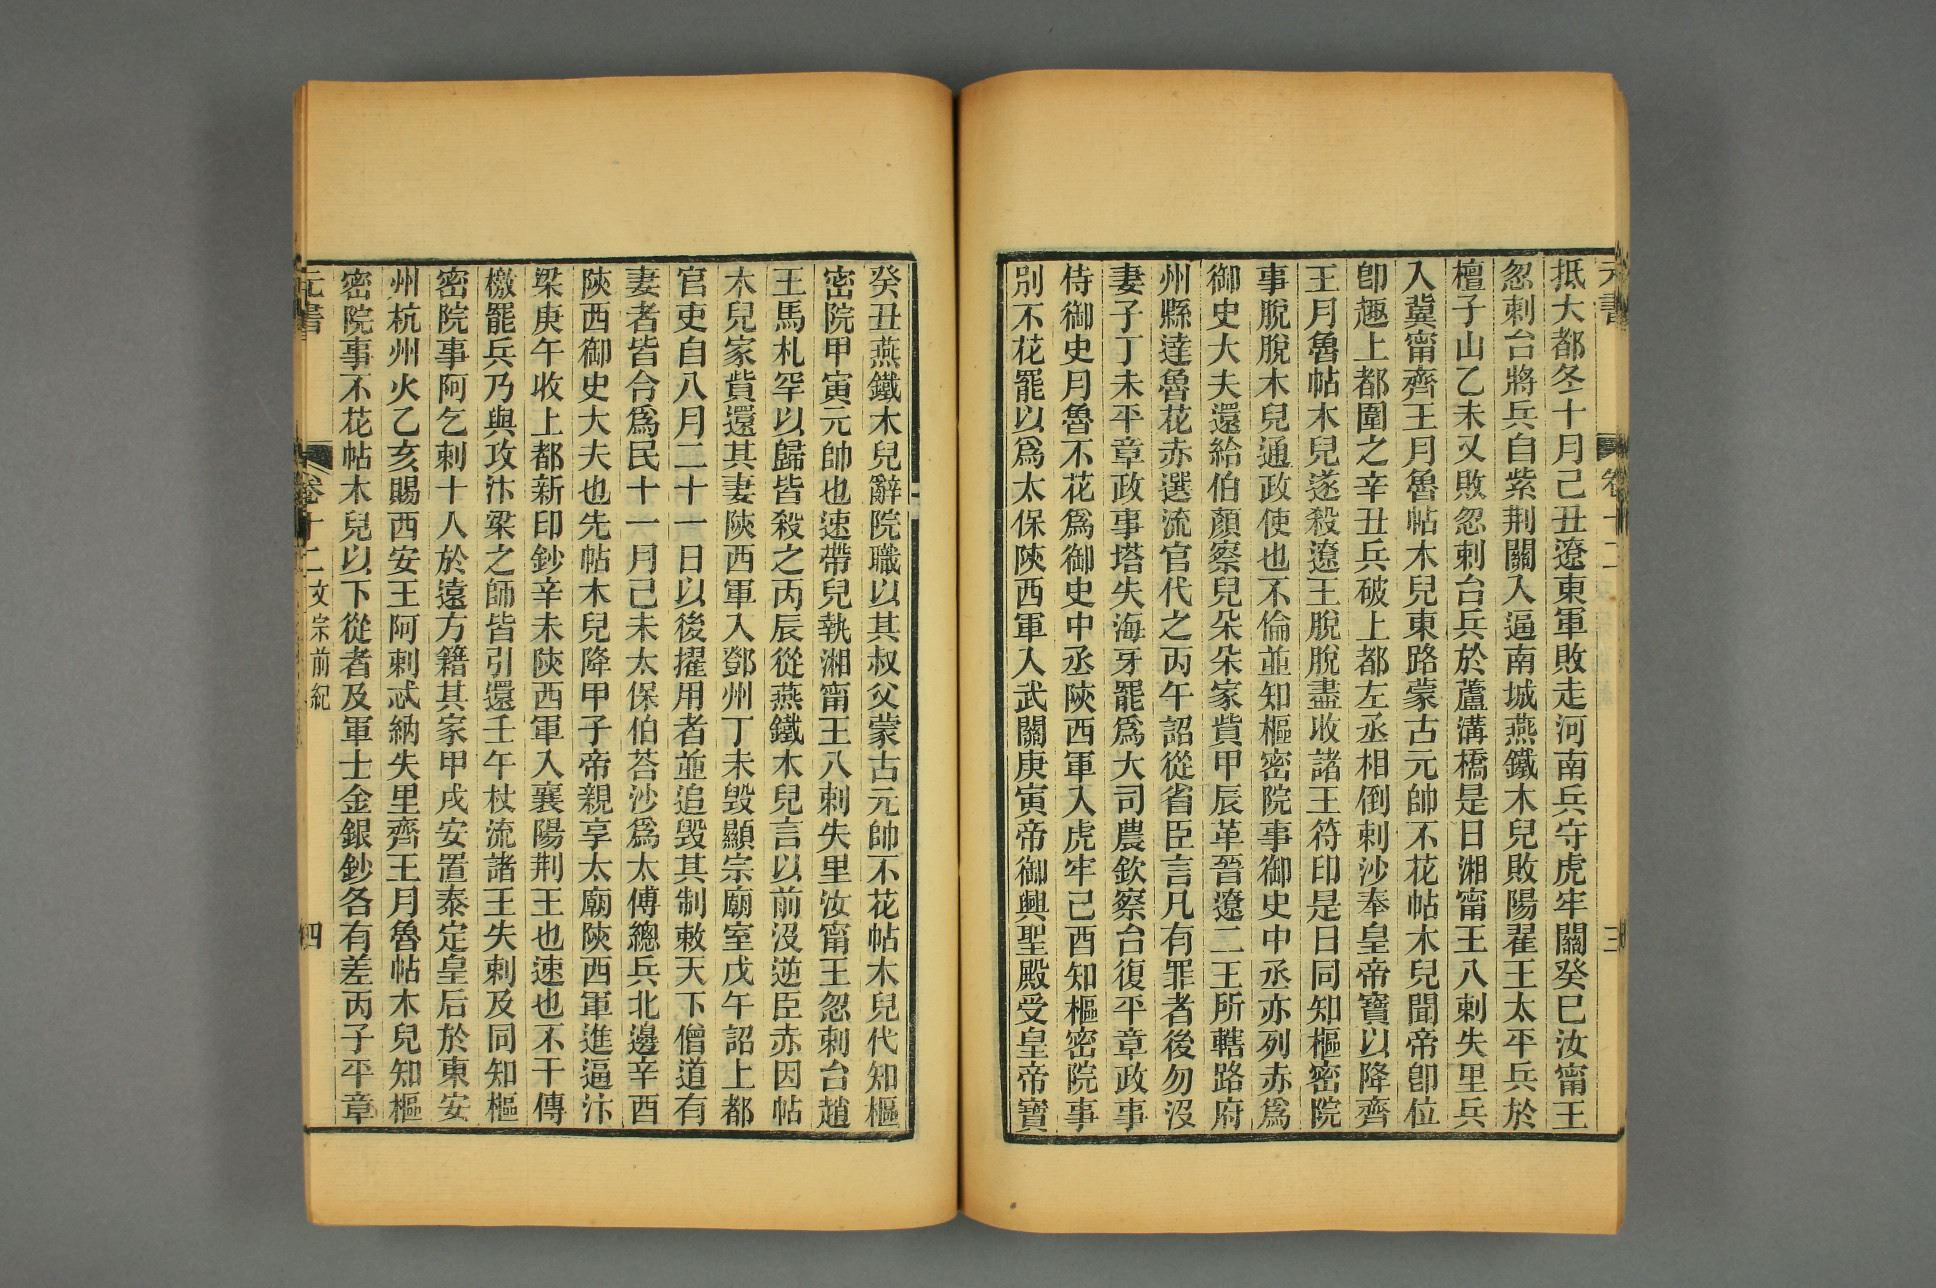 元書 卷十二 三
抵大都冬十月己丑遼東軍敗走河南兵守虎牢關癸巳汝甯王
忽剌台將兵自紫荆關入逼南城燕鐵木兒敗陽翟王太平兵於
檀子山乙未又敗忽剌台兵於蘆溝橋是日湘甯王八剌失里兵
入冀甯齊王月魯帖木兒東路蒙古元帥不花帖木兒聞帝卽位
卽趣上都圍之辛丑兵破上都左丞相倒剌沙奉皇帝寶以降齊
王月魯帖木兒遂殺遼王脫脫盡收諸王符印是日同知樞密院
事脫脫木兒通政使也不倫並知樞密院事御史中丞亦列赤爲
御史大夫還給伯顏察兒朵朵家貲甲辰革晉遼二王所轄路府
州縣達魯花赤選流官代之丙午詔從省臣言凡有罪者後勿沒
妻子丁未平章政事塔失海牙罷爲大司農欽察台復平章政事
侍御史月魯不花爲御史中丞陝西軍入虎牢己酉知樞密院事
別不花罷以爲太保陝西軍入武關庚寅帝御興聖殿受皇帝寶
癸丑燕鐵木兒辭院職以其叔父蒙古元帥不花帖木兒代知樞
密院甲寅元帥也速帶兒執湘甯王八剌失里汝甯王忽剌台趙
王馬札罕以歸皆殺之丙辰從燕鐵木兒言以前沒逆臣赤因帖
木兒家貲還其妻陝西軍入鄧州丁未毀顯宗廟室戊午詔上都
官吏自八月二十一日以後擢用者並追毀其制敕天下僧道有
妻者皆令爲民十一月己未太保伯荅沙爲太傅總兵北邊辛酉
陝西御史大夫也先帖木兒降甲子帝親享太廟陝西軍進逼汴
梁庚午收上都新印鈔辛未陝西軍入襄陽荆王也速也不干傳
檄罷兵乃與攻汴梁之師皆引還壬午杖流諸王失剌及同知樞
密院事阿乞剌十人於遠方籍其家甲戌安置泰定皇后於東安
州杭州火乙亥賜西安王阿剌忒納失里齊王月魯帖木兒知樞
密院事不花帖木兒以下從者及軍士金銀鈔各有差丙子平章
元書 卷十二 文宗前紀 四